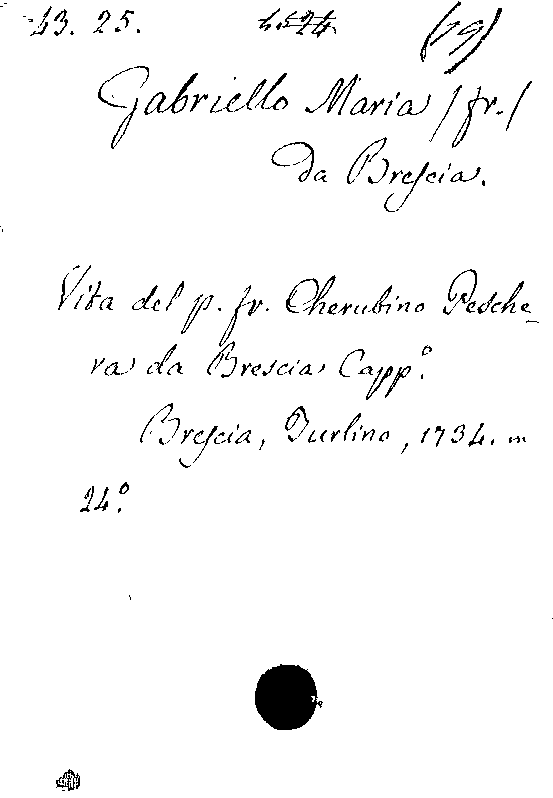 43. 25. (79)
Gabriello Maria / fr. /
Da Brescia.
Vita del p. fr. Cherubino Pesche-
ra da Brescia Capp.º
Brescia, Turlino, 1734. in
24.º